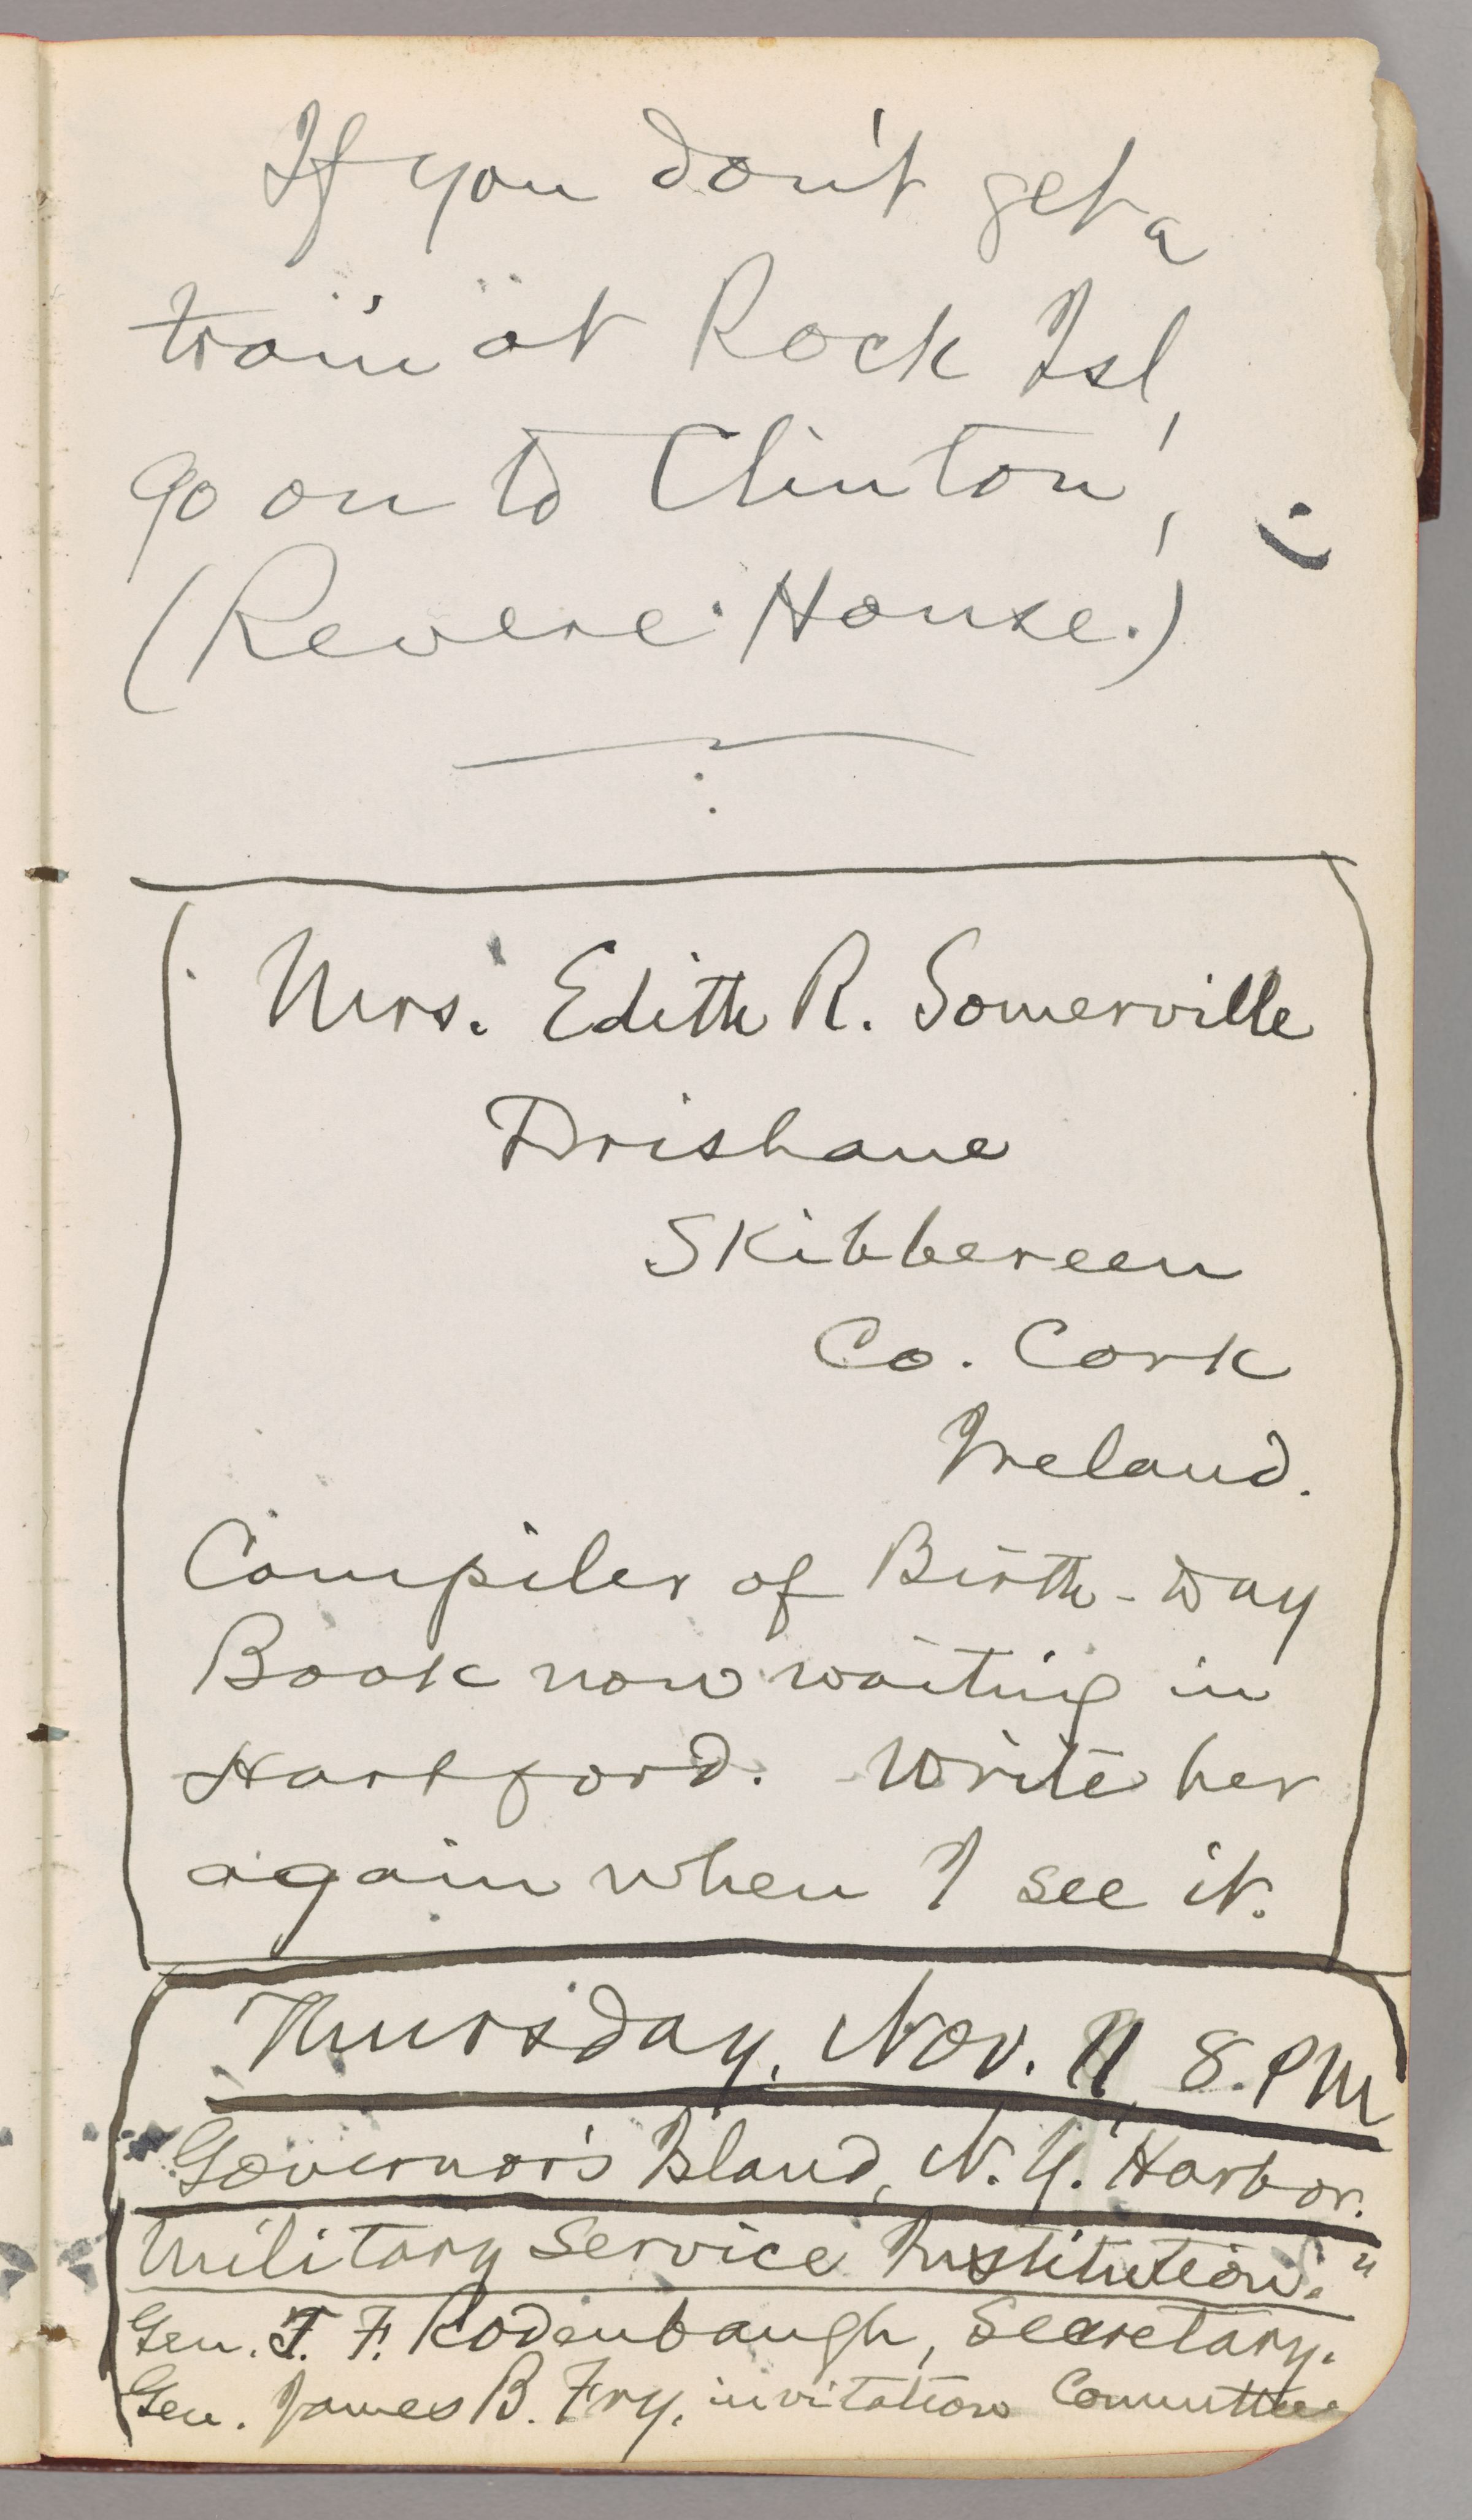 If you don't get a
train at Rock Isl,
go on to Clinton,
(Revere House.)
Mrs. Edith R. Somerville
Drishane
Skibbereen
Co. Cork
Ireland.
Compiler of Birth-day
Book now waiting in
Hartford. Write her
again when I see it.
Thursday, Nov. 11, 8. PM
Governor's Island, N. Y. Harbor.
Military Service Institution."
Gen. T. F. Rodenbaugh, Secretary.
Gen. James B. Fry, invitation Committee